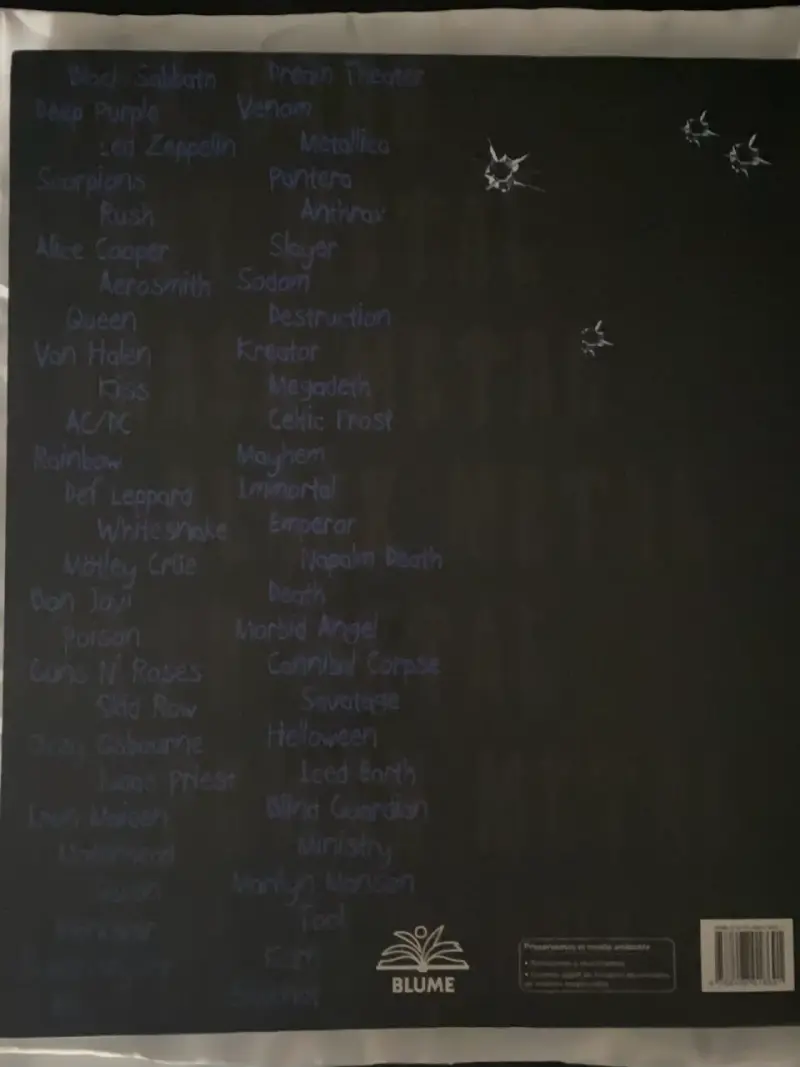 Black Sabbath
Deep Purple
Led Zeppelin
Scorpions
Rush
Alice Cooper
Aerosmith
Queen
Van Halen
Kiss
AC/DC
Rainbow
Def Leppard
Whitesnake
Mötley Crüe
Bon Jovi
Poison
Guns N' Roses
Skid Row
Ozzy Osbourne
Judas Priest
Iron Maiden
Motörhead
Saxon
Manowar
Dream Theater
Venom
Metallica
Pantera
Anthrax
Slayer
Sodom
Destruction
Kreator
Megadeth
Celtic Frost
Mayhem
Immortal
Emperor
Napalm Death
Death
Morbid Angel
Cannibal Corpse
Savatage
Helloween
Iced Earth
Blind Guardian
Ministry
Marilyn Manson
Tool
Korn
BLUME
Preservamos el medio ambiente